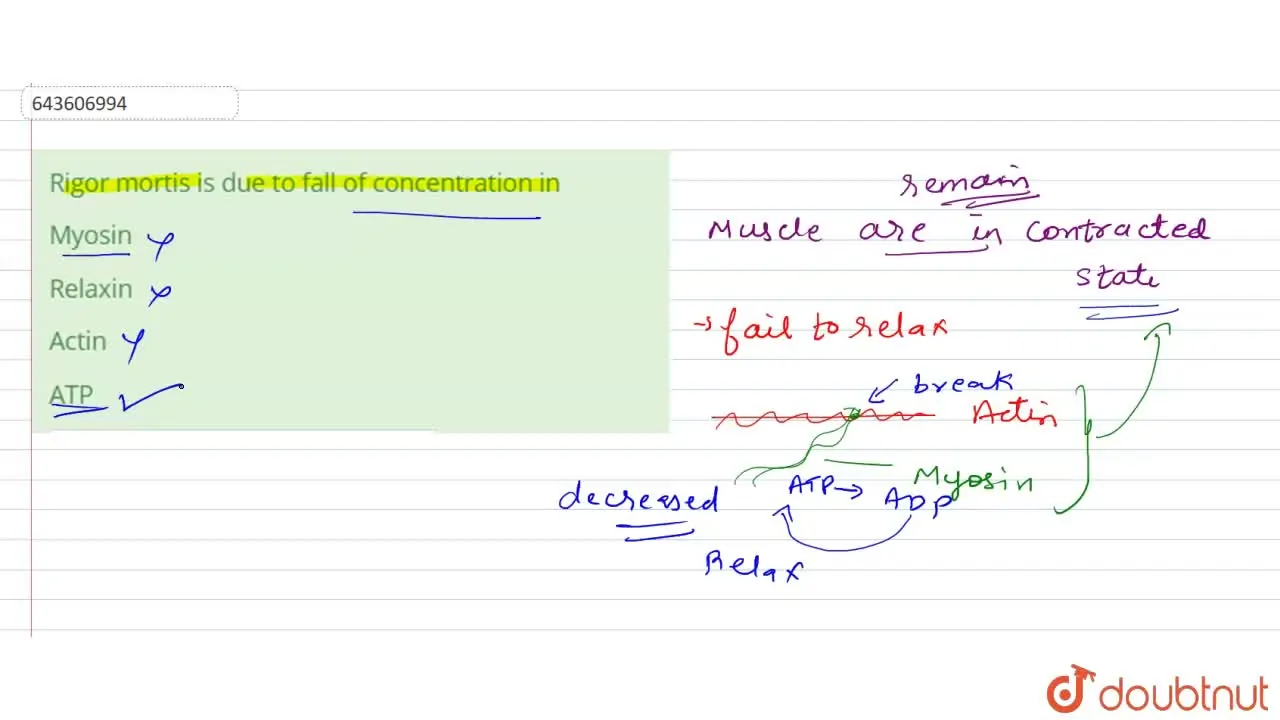 643606994
Rigor mortis is due to fall of concentration in
Myosin
Relaxin
Actin
ATP
remain
Muscle are in contracted
state
→ fail to relax
break
Actin
Myosin
ATP → ADP
decreased
Relax
doubtnut